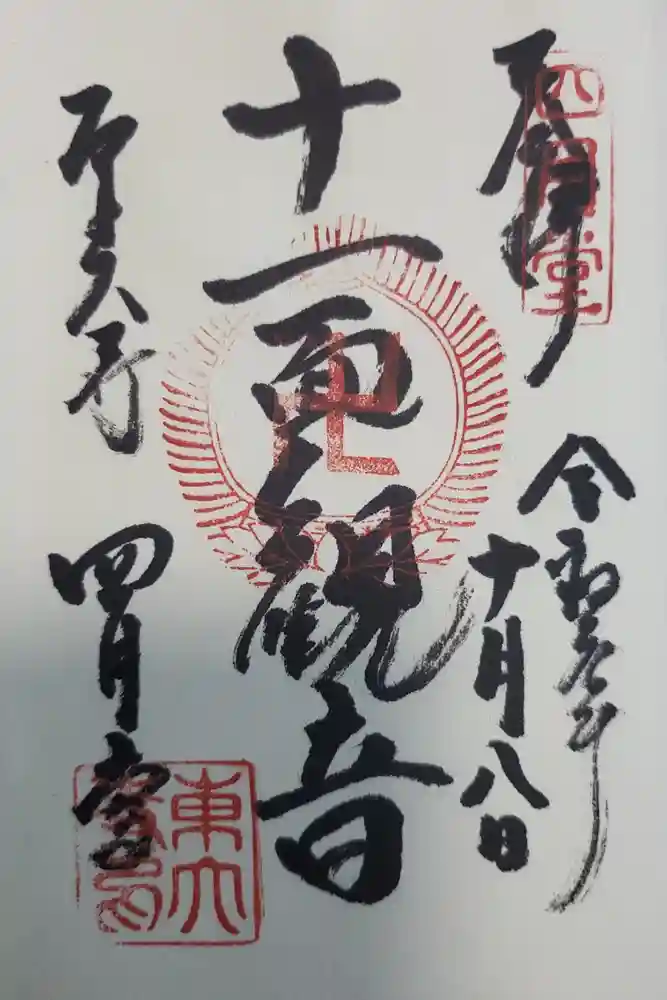 奉拝
四月堂
令和元年
十月八日
十一面観音
卍
東大寺
四月堂
東大